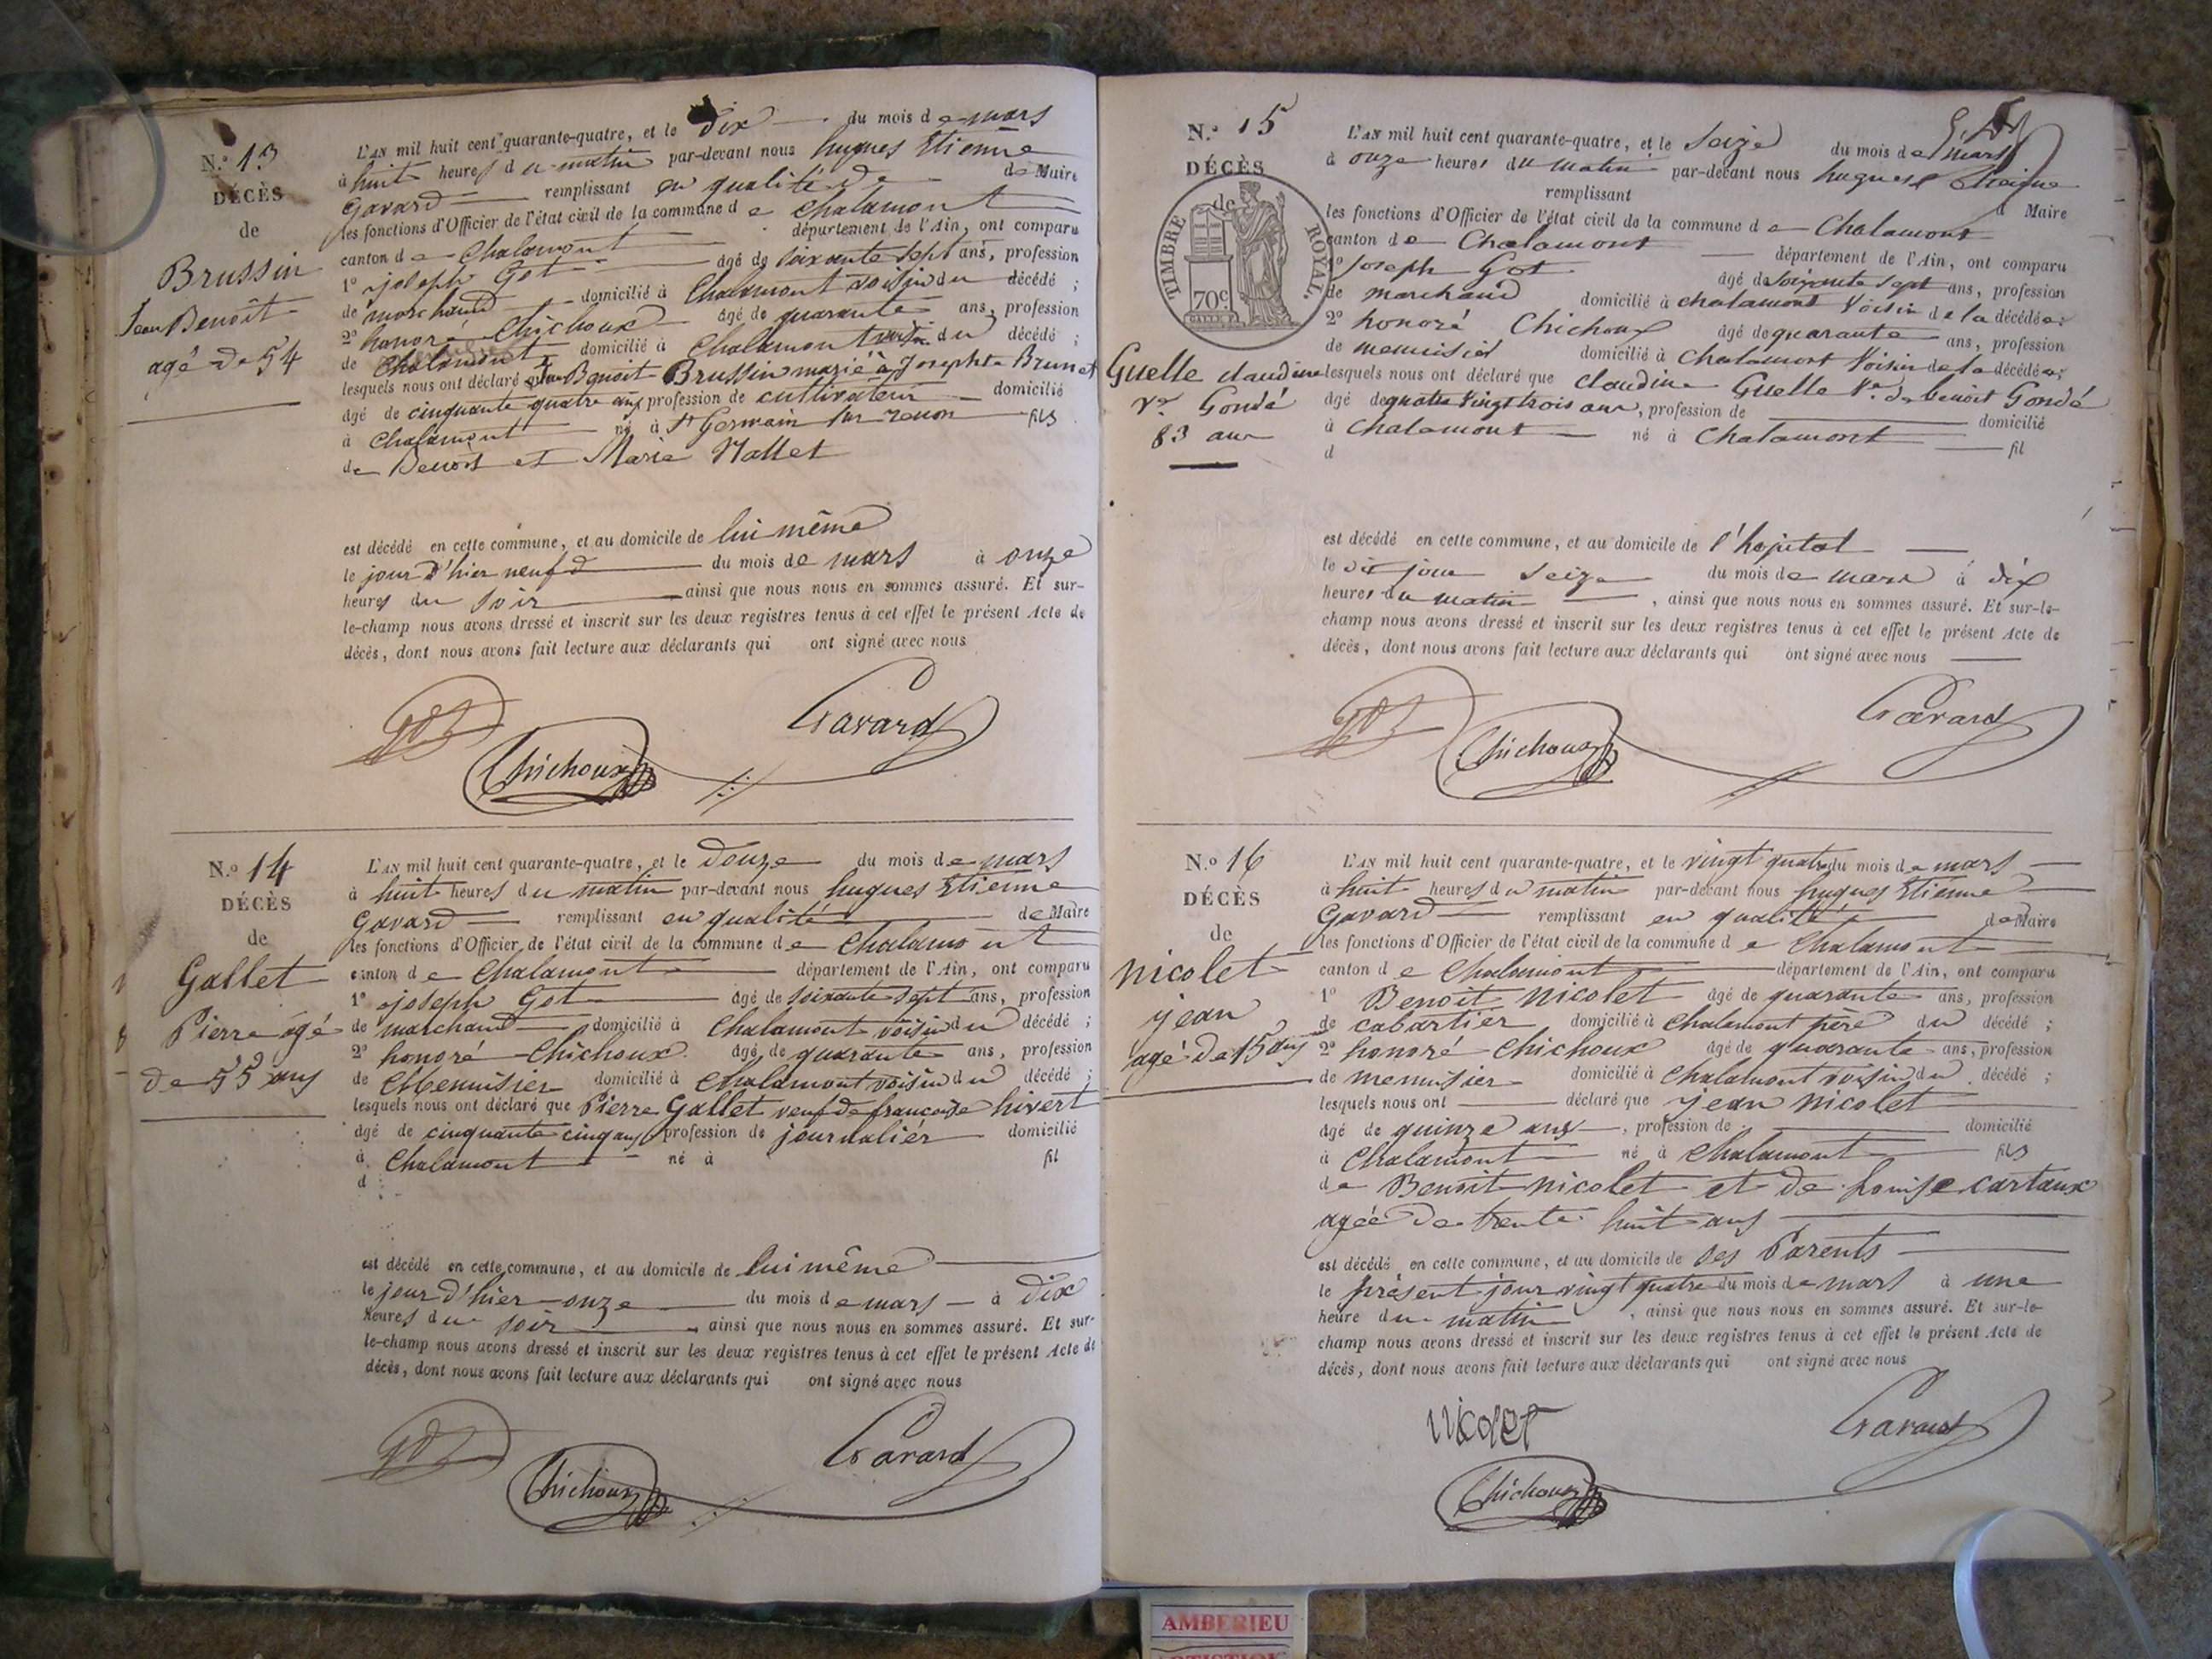 N.o 13
DÉCÈS
de
Brussin
Jean Benoît
agé de 54
L'AN mil huit cent quarante-quatre, et le dix du mois de mars
à huit heures du matin par-devant nous hugues Etienne
Gavard remplissant en qualité de de Maire
les fonctions d'Officier de l'état civil de la commune de Chalamont
canton de Chalamont département de l'Ain, ont comparu
1o joseph Got âgé de soixante sept ans, profession
de marchand domicilié à Chalamont voisin du décédé ;
2o honoré Chichoux âgé de quarante ans, profession
de Chalamont domicilié à Chalamont voisin du décédé ;
lesquels nous ont déclaré que Benoit Brussin marié à Josephte Brunet
âgé de cinquante quatre ans profession de cultivateur domicilié
à Chalamont né à St Germain sur renon fils
de Benoît et Marie Mallet
est décédé en cette commune, et au domicile de lui même
le jour d'hier neuf du mois de mars à onze
heures du soir ainsi que nous nous en sommes assuré. Et sur-
le-champ nous avons dressé et inscrit sur les deux registres tenus à cet effet le présent Acte de
décès, dont nous avons fait lecture aux déclarants qui ont signé avec nous
Got
Gavard
Chichoux
N.o 14
DÉCÈS
de
Gallet
Pierre agé
de 55 ans
L'AN mil huit cent quarante-quatre, et le douze du mois de mars
à huit heures du matin par-devant nous hugues Etienne
Gavard remplissant en qualité de Maire
les fonctions d'Officier de l'état civil de la commune de Chalamont
canton de Chalamont département de l'Ain, ont comparu
1o joseph Got âgé de soixante sept ans, profession
de marchand domicilié à Chalamont voisin du décédé ;
2o honoré Chichoux âgé de quarante ans, profession
de Menuisier domicilié à Chalamont voisin du décédé ;
lesquels nous ont déclaré que Pierre Gallet veuf de françoise hivert
âgé de cinquante cinq ans profession de journaliér domicilié
à Chalamont né à fil
d
est décédé en cette commune, et au domicile de lui même
le jour d'hier onze du mois de mars à dix
heures du soir ainsi que nous nous en sommes assuré. Et sur-
le-champ nous avons dressé et inscrit sur les deux registres tenus à cet effet le présent Acte de
décès, dont nous avons fait lecture aux déclarants qui ont signé avec nous
Got
Gavard
Chichoux
N.o 15
DÉCÈS
de
TIMBRE ROYAL.
70c
Guelle claudine
Ve Gondé
83 ans
L'AN mil huit cent quarante-quatre, et le seize du mois de mars
à onze heures du matin par-devant nous hugues Etienne
remplissant d Maire
les fonctions d'Officier de l'état civil de la commune de Chalamont
canton de Chalamont département de l'Ain, ont comparu
1o Joseph Got âgé de soixante sept ans, profession
de marchand domicilié à chalamont voisin de la décédée ;
2o honoré Chichoux âgé de quarante ans, profession
de menuisier domicilié à Chalamont voisin de la décédée ;
lesquels nous ont déclaré que claudine Guelle Ve de benoit Gondé
âgé de quatre vingt trois ans, profession de domicilié
à Chalamont né à Chalamont fil
d
est décédé en cette commune, et au domicile de l'hopital
le dit jour seize du mois de mars à dix
heures du matin , ainsi que nous nous en sommes assuré. Et sur-le-
champ nous avons dressé et inscrit sur les deux registres tenus à cet effet le présent Acte de
décès, dont nous avons fait lecture aux déclarants qui ont signé avec nous
Got
Gavard
Chichoux
N.o 16
DÉCÈS
de
nicolet
jean
agé de 15 ans
L'AN mil huit cent quarante-quatre, et le vingt quatre du mois de mars
à huit heures du matin par-devant nous hugues Etienne
Gavard remplissant en qualité de Maire
les fonctions d'Officier de l'état civil de la commune de Chalamont
canton de Chalamont département de l'Ain, ont comparu
1o Benoit nicolet âgé de quarante ans, profession
de cabartier domicilié à Chalamont père du décédé ;
2o honoré Chichoux âgé de quarante ans, profession
de menuisier domicilié à Chalamont voisin du décédé ;
lesquels nous ont déclaré que jean nicolet
âgé de quinze ans , profession de domicilié
à Chalamont né à Chalamont fils
de Benoit nicolet et de Louise cartaux
agée de trente huit ans
est décédé en cette commune, et au domicile de ses Parents
le présent jour vingt quatre du mois de mars à une
heure du matin , ainsi que nous nous en sommes assuré. Et sur-le-
champ nous avons dressé et inscrit sur les deux registres tenus à cet effet le présent Acte de
décès, dont nous avons fait lecture aux déclarants qui ont signé avec nous
nicolet
Gavard
Chichoux
AMBERIEU